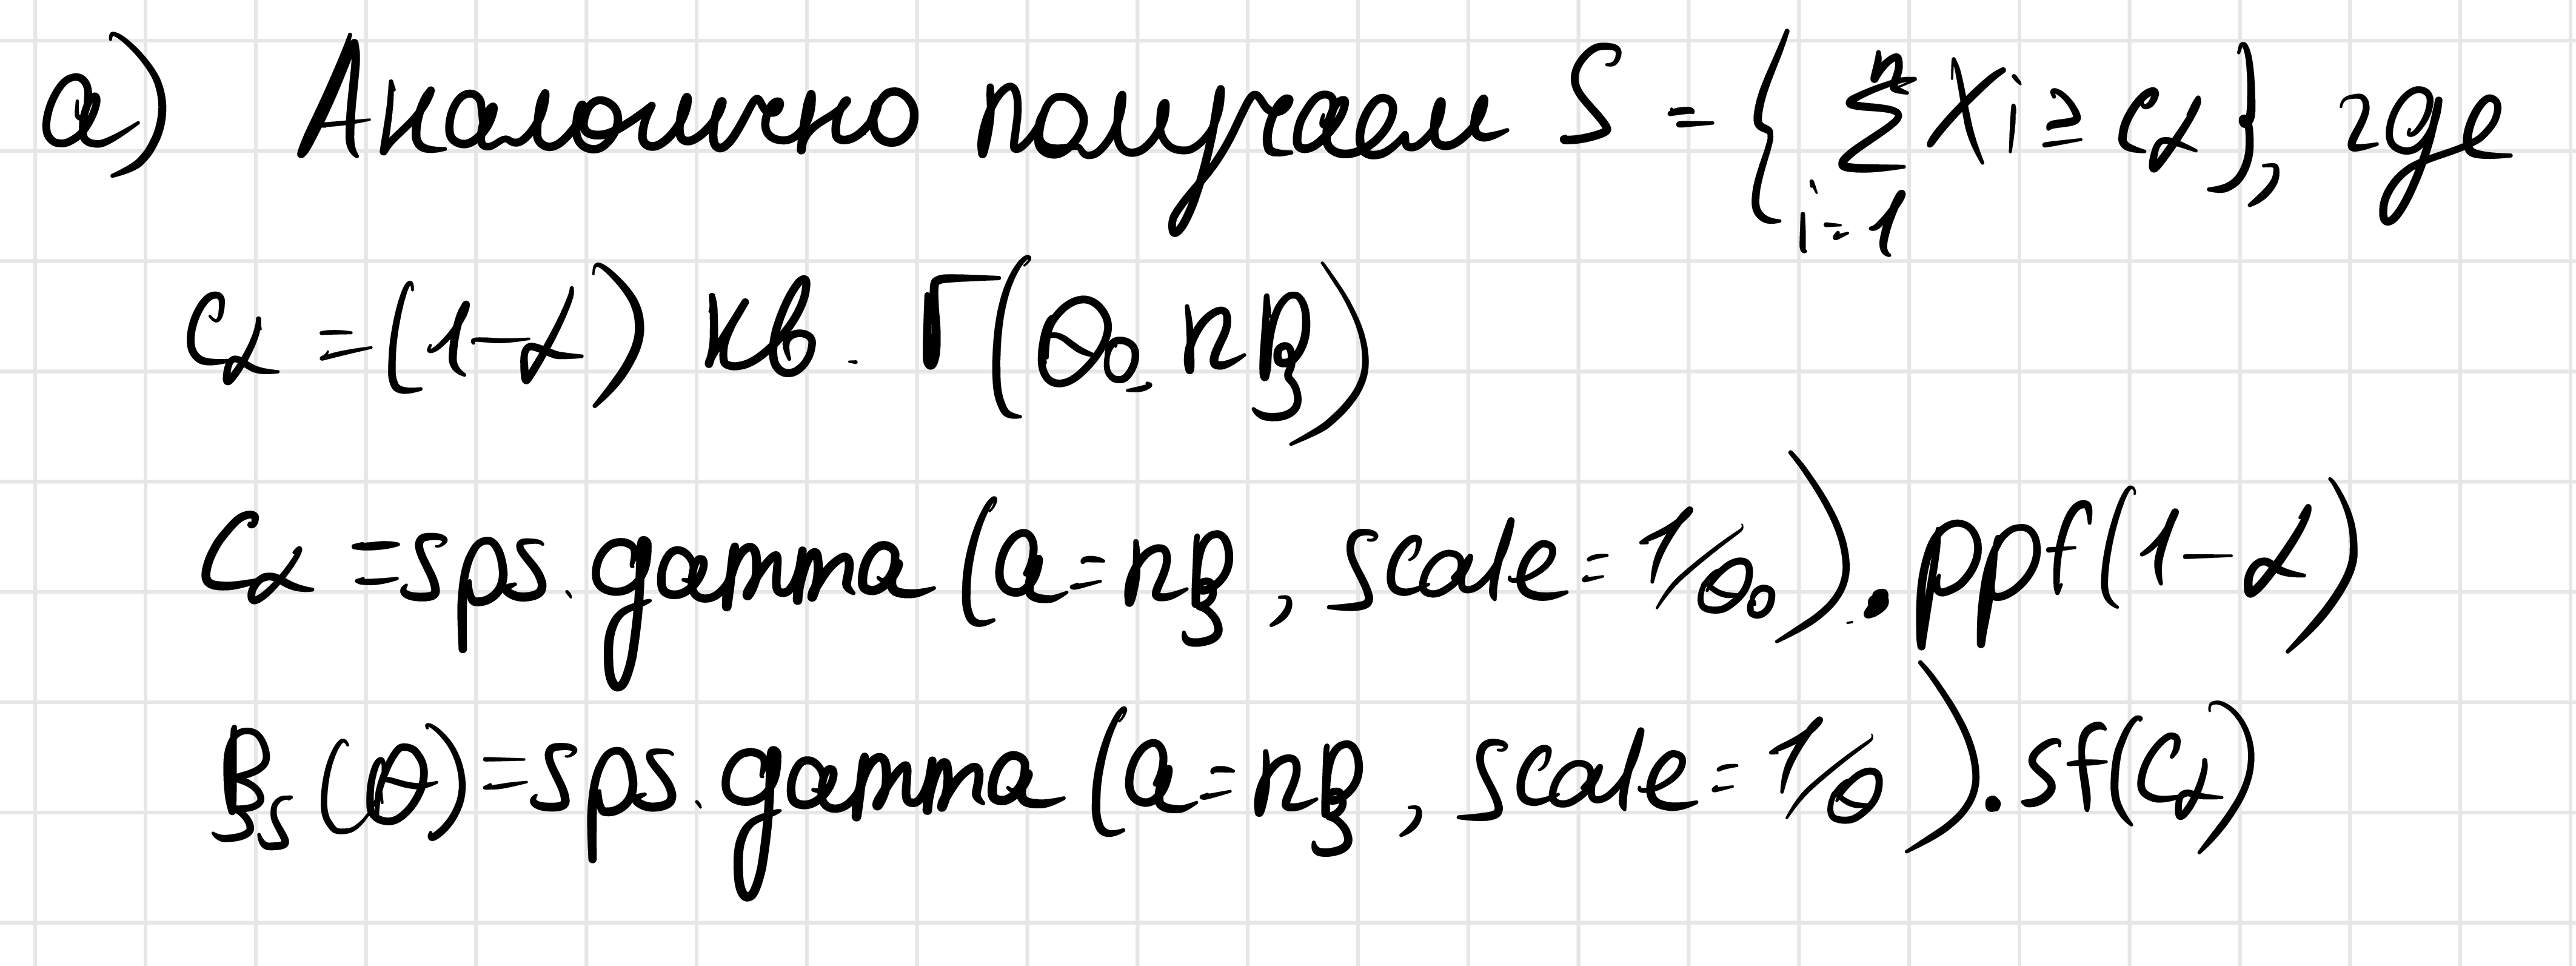 а) Аналогично получаем S = {∑_{i=1}^{n} Xi ≥ cα}, где
Cα = (1-α) кв. Γ(θ0, nβ)
Cα = sps.gamma(a=nβ, scale=1/θ0).ppf(1-α)
βs(θ) = sps.gamma(a=nβ, scale=1/θ).sf(Cα)